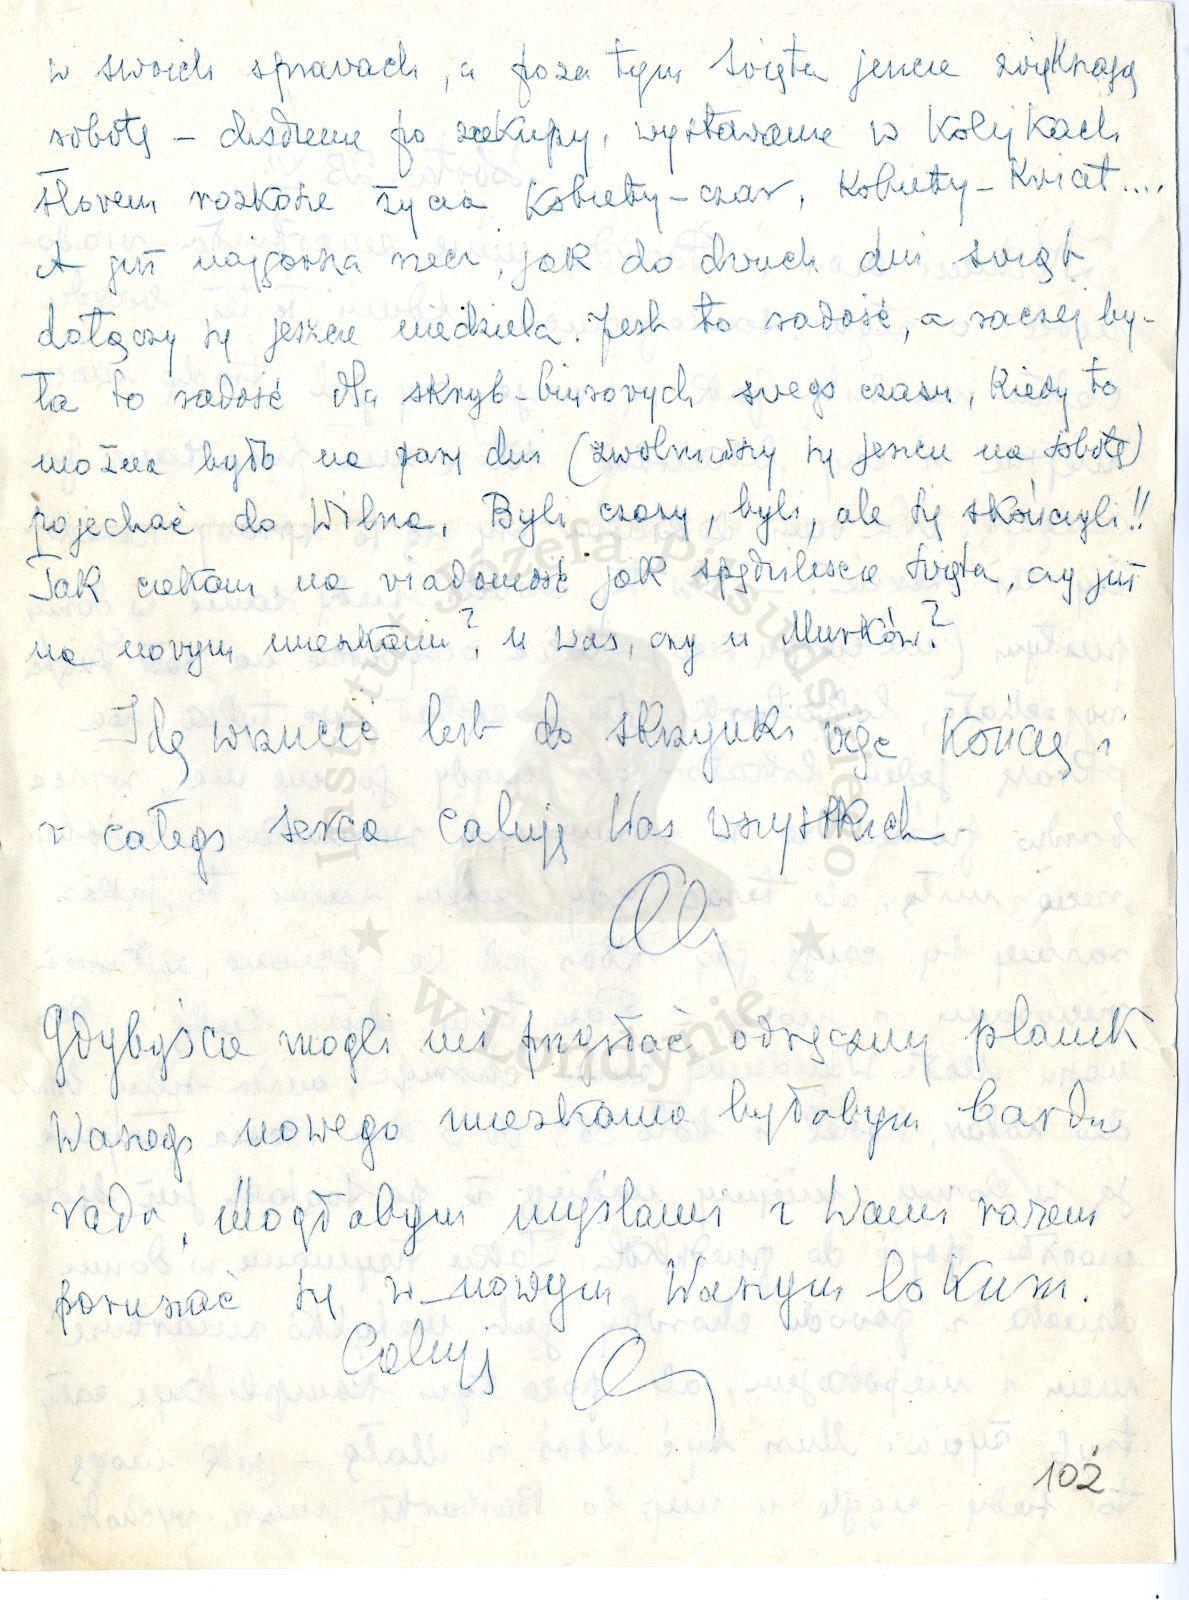 w swoich sprawach, a poza tym święta jeszcze zwiększają
robotę – chodzenie po zakupy, wystawanie w kolejkach
słowem rozkosze życia kobiety-czar, kobiety-kwiat....
A już najgorsza rzecz, jak do dwuch dni świąt
dołączy się jeszcze niedziela. Jest to radość, a raczej by-
ła to radość dla skryb-biurowych swego czasu, kiedy to
można było na parę dni (zwolniwszy się jeszcze na sobotę)
pojechać do Wilna. Byli czasy, byli, ale się skończyli!!
Tak czekam na wiadomość jak spędziliście święta, czy już
na nowym mieszkaniu?, u Was, czy u Murków?
Idę wrzucić list do skrzynki więc kończę i
z całego serca całuję Was wszystkich
Gdybyście mogli mi przysłać odręczny planik
Waszego nowego mieszkania byłabym bardzo
rada, mogłabym myślami z Wami razem
poruszać się w nowym Waszym lokum.
Całuję
102
Instytut Józefa Piłsudskiego
w Londynie